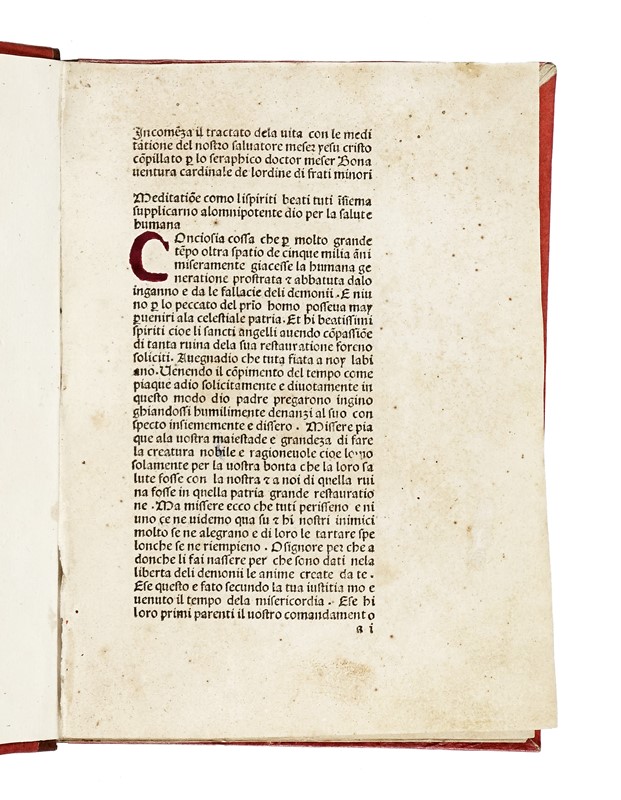 Incomẽza il tractato dela uita con le medi
tatione del nostro saluatore meser yesu cristo
cõpillato ꝑ lo seraphico doctor meser Bona
uentura cardinale de lordine di frati minori
Meditatiõe como li spiriti beati tuti ĩsiema
supplicarno alomnipotente dio per la salute
humana
COnciosia cossa che ꝑ molto grande
tẽpo oltra spatio de cinque milia ãni
miseramente giacesse la humana ge
neratione prostrata ⁊ abbatuta dalo
inganno e da le fallacie deli demonii . E niu
no ꝑ lo peccato del prĩo homo posseua may
ꝑueniri ala celestiale patria . Et hi beatissimi
spiriti cioe li sancti angelli auendo cõpassiõe
di tanta ruina dela sua restauratione foreno
soliciti . Auegnadio che tuta fiata a noy labi
ano . Uenendo il cõpimento del tempo come
piaque adio solicitamente e diuotamente in
questo modo dio padre pregarono ingino
ghiandossi humilimente denanzi al suo con
specto insiememente e dissero . Missere pia
que ala uostra maiestade e grandeza di fare
la creatura nobile e ragioneuole cioe lomo
solamente per la uostra bonta che la loro sa
lute fosse con la nostra ⁊ a noi di quella rui
na fosse in quella patria grande restauratio
ne . Ma missere ecco che tuti perisseno e ni
uno çe ne uidemo qua su ⁊ hi nostri inimici
molto se ne alegrano e di loro le tartare spe
lonche se ne riempieno . O signore per che a
donche li fai nassere per che sono dati nela
liberta deli demonii le anime create da te .
Ese questo e fato secundo la tua iustitia mo e
uenuto il tempo dela misericordia . Ese hi
loro primi parenti il uostro comandamento
a i